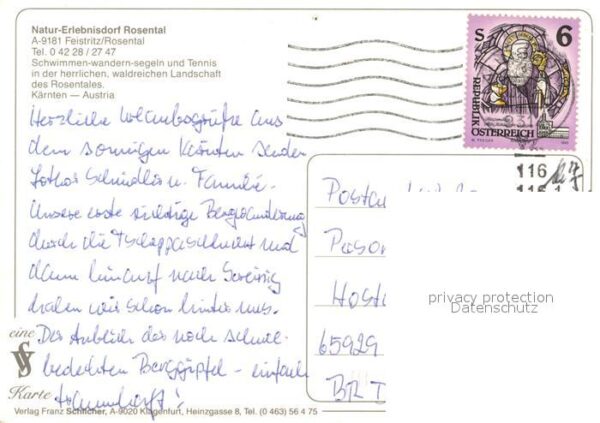 Natur-Erlebnisdorf Rosental
A-9181 Feistritz/Rosental
Tel. 0 42 28 / 27 47
Schwimmen-wandern-segeln und Tennis
in der herrlichen, waldreichen Landschaft
des Rosentales.
Kärnten — Austria
Herzliche Urlaubsgrüße aus
dem sonnigen Kärnten senden
Lothar Schindler u. Familie.
Unsere erste richtige Bergwanderung
durch die Tscheppaschlucht und
dann hinauf nach
haben wir schon hinter uns.
Der Anblick der noch schnee-
bedeckten Berggipfel - einfach
traumhaft!
eine
Karte
Verlag Franz Schilcher, A-9020 Klagenfurt, Heinzgasse 8, Tel. (0 463) 56 4 75
S 6
REPUBLIK
ÖSTERREICH
116
Posta
Paso
Hosta
65929
privacy protection
Datenschutz